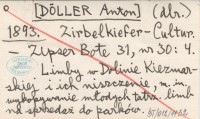 [DÖLLER Anton] (dbr.)
1893. Zirbelkiefer-Cultur.
— Zipser Bote 31, nr 30: 4.
Limby w Dolinie Kiezmar-
skiej i ich niszczenie, m. in.
wykopywanie młodych tatrz. limb
na sprzedaż do parków.